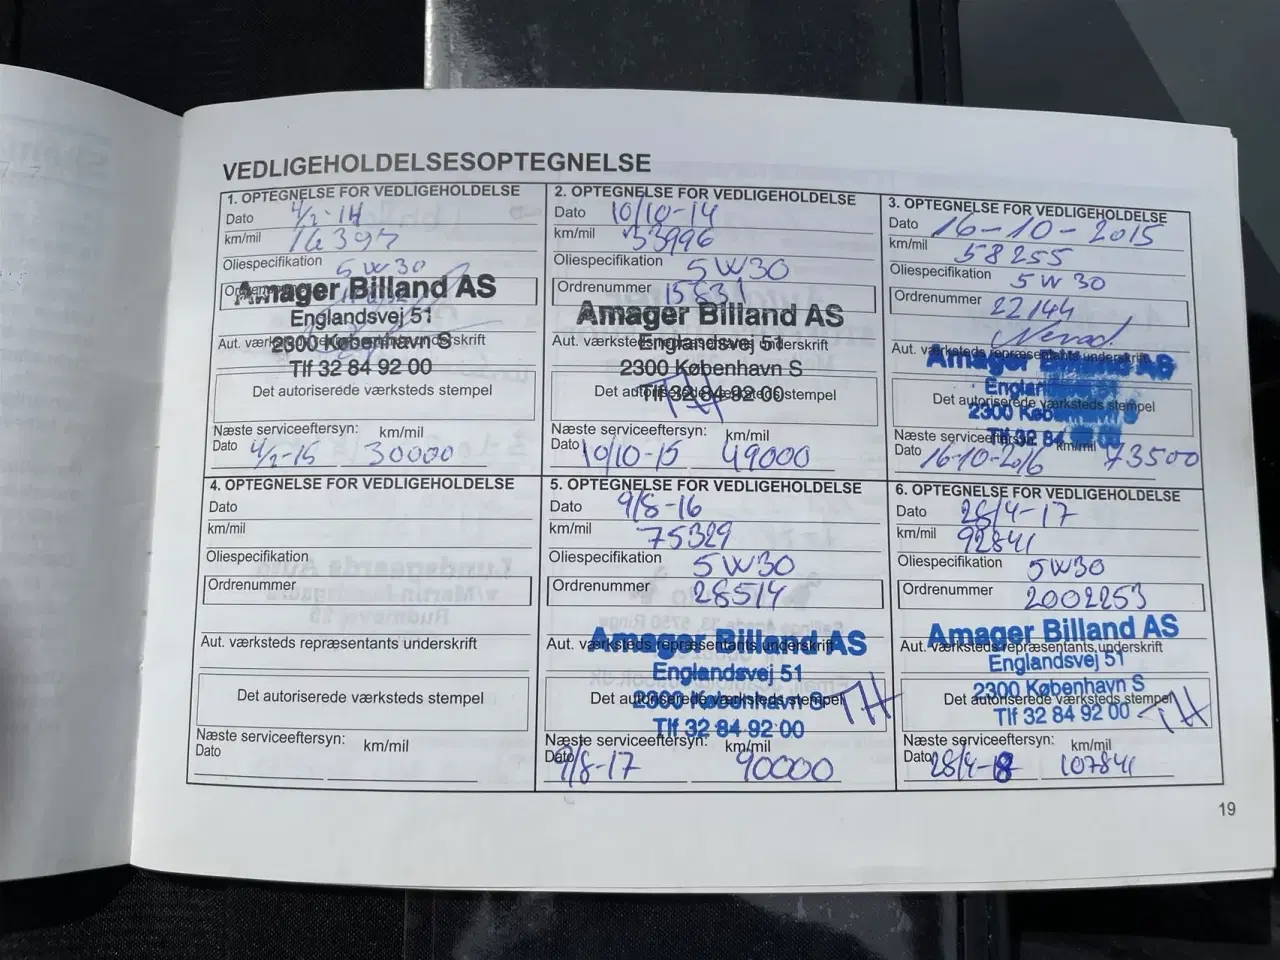 VEDLIGEHOLDELSESOPTEGNELSE
1. OPTEGNELSE FOR VEDLIGEHOLDELSE
Dato 4/2-14
km/mil 16397
Oliespecifikation 5W30
Amager Billand AS
Englandsvej 51
Aut. værksteds repræsentants underskrift
2300 København S
Tlf 32 84 92 00
Det autoriserede værksteds stempel
Næste serviceeftersyn: km/mil
Dato 4/2-15 30000
2. OPTEGNELSE FOR VEDLIGEHOLDELSE
Dato 10/10-14
km/mil 33996
Oliespecifikation 5W30
Ordrenummer 15831
Amager Billand AS
Aut. værksteds repræsentants underskrift
Englandsvej 51
2300 København S
Det autoriserede værksteds stempel
Tlf 32 84 92 00
TH
Næste serviceeftersyn: km/mil
Dato 10/10-15 49000
3. OPTEGNELSE FOR VEDLIGEHOLDELSE
Dato 16-10-2015
km/mil 58255
Oliespecifikation 5W30
Ordrenummer 22144
Aut. værksteds repræsentants underskrift
Amager Billand AS
Det autoriserede værksteds stempel
2300
Tlf 32 84
Næste serviceeftersyn: km/mil
Dato 16-10-2016 73500
4. OPTEGNELSE FOR VEDLIGEHOLDELSE
Dato
km/mil
Oliespecifikation
Ordrenummer
Aut. værksteds repræsentants underskrift
Det autoriserede værksteds stempel
Næste serviceeftersyn: km/mil
Dato
5. OPTEGNELSE FOR VEDLIGEHOLDELSE
Dato 9/8-16
km/mil 75329
Oliespecifikation 5W30
Ordrenummer 28514
Amager Billand AS
Aut. værksteds repræsentants underskrift
Englandsvej 51
Det autoriserede værksteds stempel
2300 København S
TH
Tlf 32 84 92 00
Næste serviceeftersyn: km/mil
Dato 9/8-17 90000
6. OPTEGNELSE FOR VEDLIGEHOLDELSE
Dato 28/4-17
km/mil 92841
Oliespecifikation 5W30
Ordrenummer 2002253
Amager Billand AS
Aut. værksteds repræsentants underskrift
Englandsvej 51
2300 København S
Det autoriserede værksteds stempel
Tlf 32 84 92 00
TH
Næste serviceeftersyn: km/mil
Dato 28/4-18 107841
19